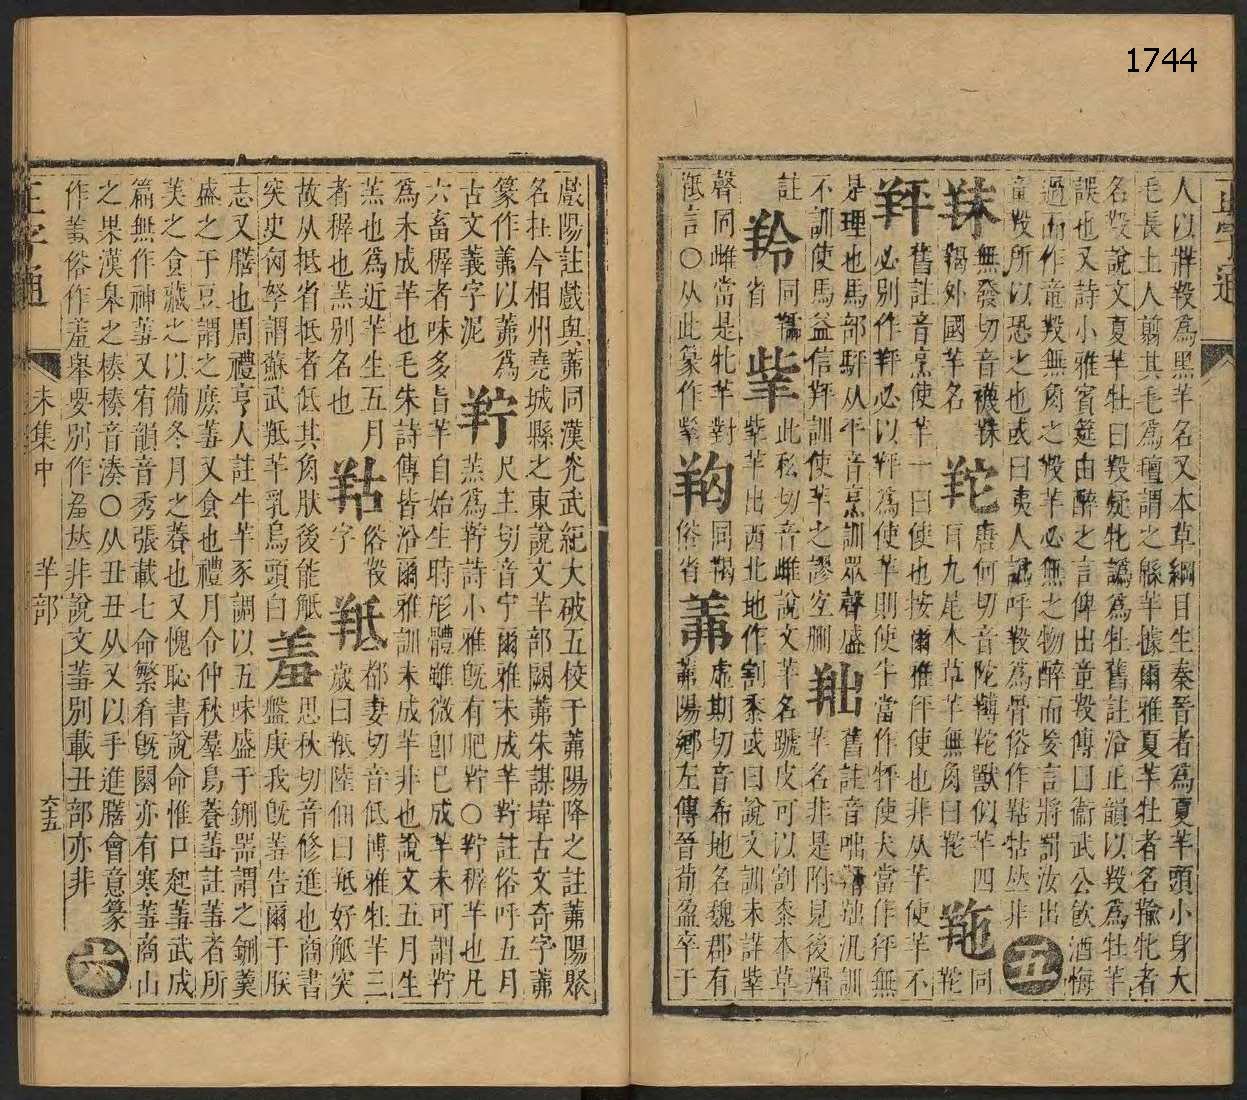 1744
正字通
人以牂羖爲黑羊名又本草綱目生秦晉者爲夏羊頭小身大
毛長土人翦其毛爲氊謂之緜羊據爾雅夏羊牡者名羭牝者
名羖說文夏羊牡曰羖疑牝譌爲牡舊註沿正韻以羖爲牡羊
誤也又詩小雅賔筵由醉之言俾出童羖傳曰衞武公飲酒悔
過而作童羖無角之羖羊必無之物醉而妄言將罰汝出
童羖所以恐之也或曰夷人譌呼羖爲骨俗作䍩牯𠀤非 五
䍪 無發切音襪䍪
羯外國羊名 䍫 唐何切音陀䍫獸似羊四
耳九尾本草羊無角曰䍫 𦍛 同
䍫
䍬 舊註音烹使羊一曰使也按爾雅抨使也非从羊使羊不
必別作䍬必以䍬爲使羊則使牛當作牪使犬當作䍬無
是理也馬部駍从平音烹訓眾聲盛
不訓使馬益信䍬訓使羊之謬宐刪 䍮 舊註音咄䍮汎訓
羊名非是附見後𦎯
註 羚 同𦏰
省 羜 此私切音雌說文羊名蹏皮可以割桼本草
羊出西北地作割黍或曰說文訓未詳
聲同雌當是牝羊對
羝言○从此篆作 䍧 同羯
俗省 羛 虛期切音希地名魏郡有
羛陽鄉左傳晉荀盈卒于
戲陽註戲與羛同漢光武紀大破五校于羛陽降之註羛陽聚
名杜今相州堯城縣之東說文羊部闕羛朱謀㙔古文奇字羛
篆作羛以羛爲
古文義字泥 羜 尺主切音宁爾雅未成羊羜註俗呼五月
羔爲羜詩小雅旣有肥羜○羜穉羊也凡
六畜穉者味多旨羊自始生時形體雖微卽已成羊未可謂羜
爲未成羊也毛朱詩傳皆沿爾雅訓未成羊非也說文五月生
羔也爲近羊生五月
者穉也羔別名也 䍩 俗羖
字 羝 都妻切音低博雅牡羊三
歲曰羝陸佃曰羝好觝突
故从抵省抵者低其角狀後能觝
突史匈奴謂蘇武羝羊乳烏頭白 羞 思秋切音修進也商書
盤庚我旣羞告爾于朕
志又膳也周禮亨人註牛羊豕調以五味盛于鉶器謂之鉶羹
盛之于豆謂之庶羞又食也禮月令仲秋羣鳥養羞註羞者所
美之食藏之以備冬月之養也又愧恥書說命惟口起羞武成
篇無作神羞又宥韻音秀張載七命繁肴旣闋亦有寒羞商山
之果漢皐之楱楱音湊○从丑丑从又以手進膳會意篆
作羞俗作羞舉要別作𠀤非說文羞別載丑部亦非 六
正字通
未集中 羊部
六十五